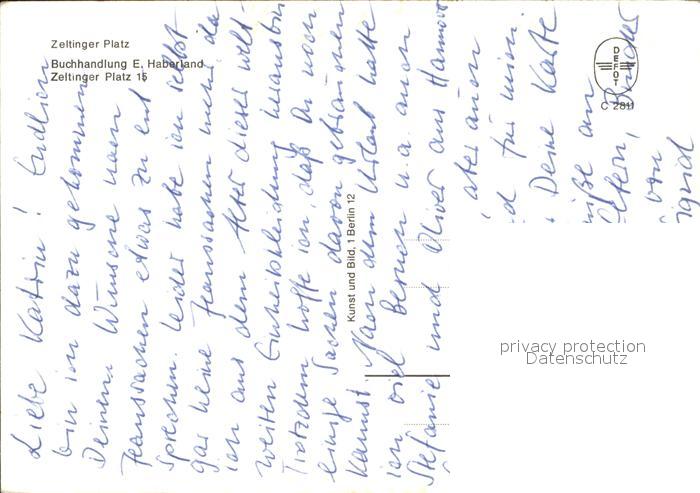 Zeltinger Platz
Buchhandlung E. Haberland
Zeltinger Platz 15
DEFOT
C 2811
Kunst und Bild, 1 Berlin 12
Liebe Katrin! Endlich
bin ich dazu gekommen
Deinem Wunsche nach
Jeanssachen etwas zu ent
sprechen. Leider habe ich selbst
gar keine Jeanssachen mehr, da
ich aus dem Alter dieser welt-
weiten Einheitskleidung heraus bin
Trotzdem hoffe ich, daß Du noch
einige Sachen davon gebrauchen
kannst. Nach dem Urlaub hatte
ich viel Besuch u.a. auch
Stefanie und Oliver aus Hannover
aber auch
für mich
Deine Karte
an
Eltern, Bruder
von
Ingrid
privacy protection
Datenschutz